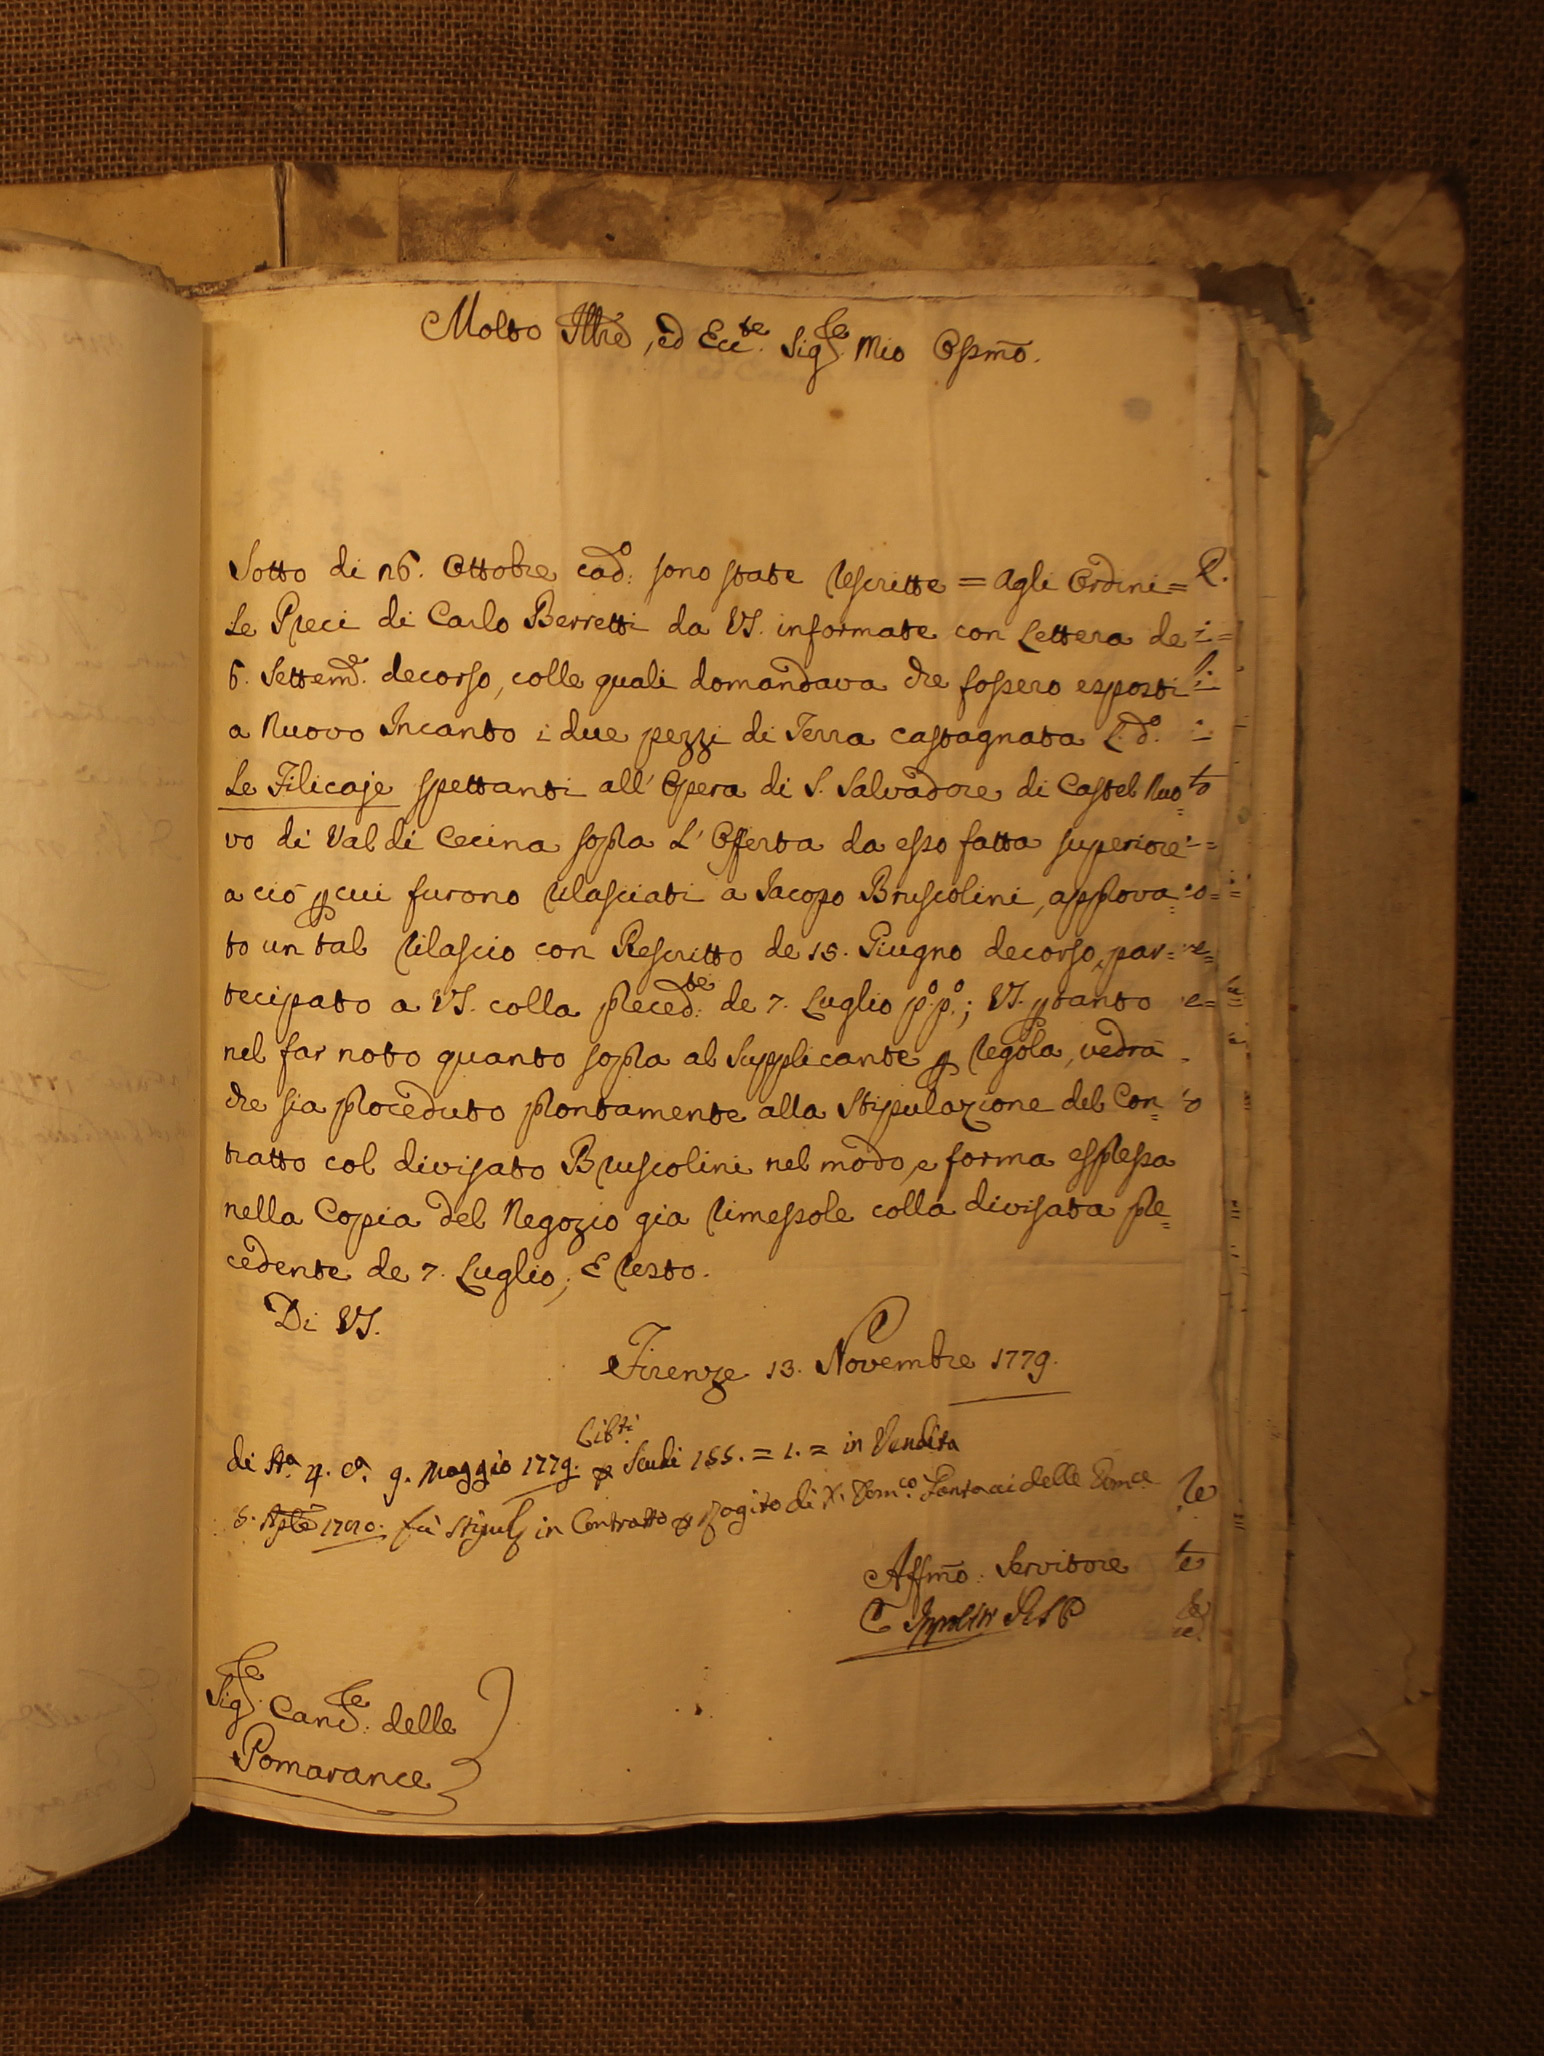 Molto Illre, ed Ecc.te Sig.re Mio Ossmo.
Sotto di 26. Ottobre cad.o sono state rescritte = Agli Ordini =
Le Preci di Carlo Berretti da VS. informate con Lettera de
6. Settem.e decorso, colle quali domandava che fossero esposti
a Nuovo Incanto i due pezzi di Terra castagnata L.d.o
Le Filicaje spettanti all' Opera di S. Salvadore di Castel Nuo=
vo di Val di Cecina sopra L' Offerta da esso fatta superiore
a ciò p cui furono rilasciati a Jacopo Bruscolini, approva=
to un tal rilascio con Rescritto de 15. Giugno decorso, par=
tecipato a VS. colla preced.te de 7. Luglio p.o p.o; VS. ptanto
nel far noto quanto sopra al Supplicante p regola, vedrà
che sia proceduto prontamente alla Stipulazione del Con=
tratto col divisato Bruscolini nel modo, e forma espressa
nella Copia del Negozio già rimessole colla divisata pre=
cedente de 7. Luglio; E resto.
Di VS.
Firenze 13. Novembre 1779.
Lib.ti
di St.a 4. c.a 9. Maggio 1779. p Scudi 155. = 1. = in Vendita
fù Stipul in Contratto p rogito di delle
Affmo. Servitore
Sig.re Canc.re delle
Pomarance